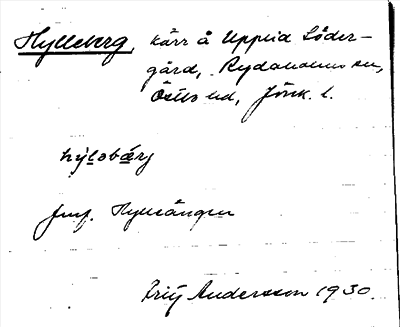 Hylleberg, kärr å Upplid Söder-
gård, Rydaholms sn,
Östbo hd, Jönk. l.
hýlsbärj
Jmf. Hylleången
Fritj Andersson 1930.